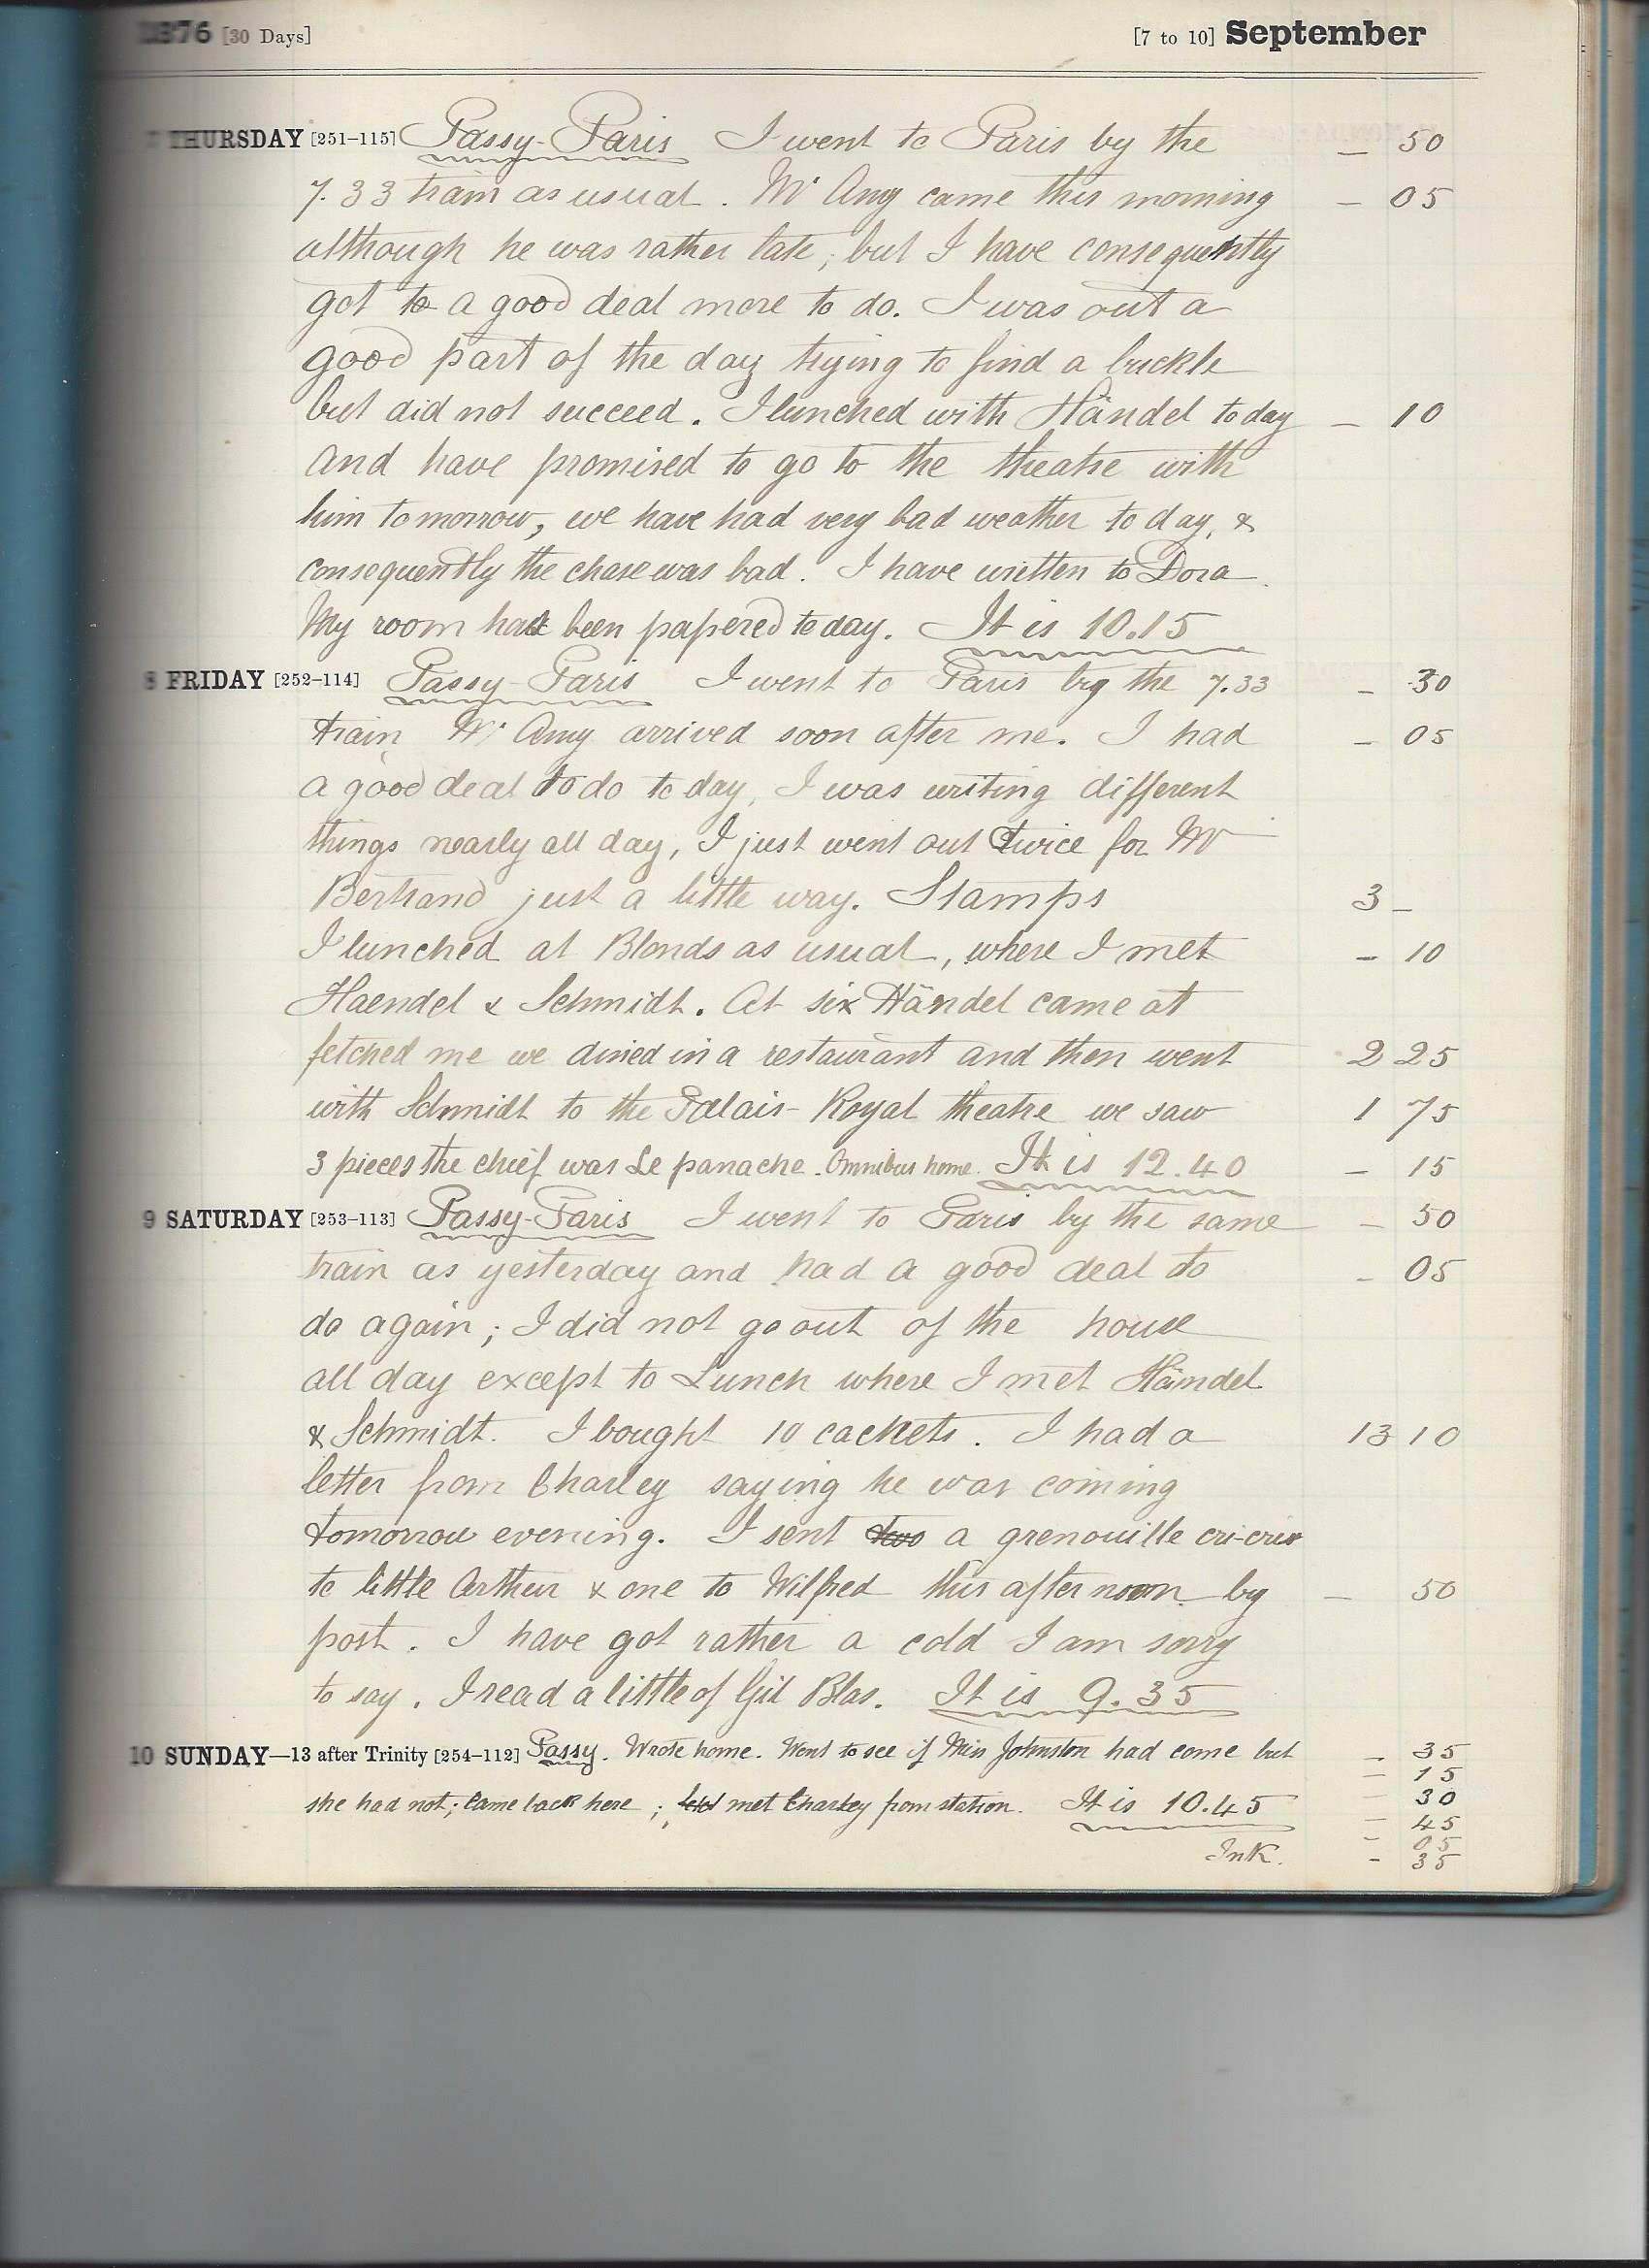 1876 [30 Days] [7 to 10] September
7 THURSDAY [251-115] Passy-Paris I went to Paris by the — 50
7.33 train as usual. Mr Amy came this morning — 05
although he was rather late, but I have consequently
got to a good deal more to do. I was out a
good part of the day trying to find a buckle
but did not succeed. I lunched with Händel today — 10
and have promised to go to the theatre with
him tomorrow, we have had very bad weather to day, &
consequently the chase was bad. I have written to Dora.
My room has been papered to day. It is 10.15
8 FRIDAY [252-114] Passy-Paris I went to Paris by the 7.33 — 30
train Mr Amy arrived soon after me. I had — 05
a good deal to do to day, I was writing different
things nearly all day, I just went out twice for Mr
Bertrand just a little way. Stamps 3 —
I lunched at Blonds as usual, where I met — 10
Haendel & Schmidt. At six Händel came at
fetched me we dined in a restaurant and then went 2 25
with Schmidt to the Palais-Royal theatre we saw 1 75
3 pieces the chief was Le panache. Omnibus home. It is 12.40 — 15
9 SATURDAY [253-113] Passy-Paris I went to Paris by the same — 50
train as yesterday and had a good deal to — 05
do again; I did not go out of the house
all day except to Lunch where I met Händel
& Schmidt. I bought 10 cachets. I had a 13 10
letter from Charley saying he was coming
tomorrow evening. I sent two a grenouille cri-cris
to little Arthur & one to Wilfred this afternoon by — 50
post. I have got rather a cold I am sorry
to say. I read a little of Gil Blas. It is 9.35
10 SUNDAY—13 after Trinity [254-112] Passy. Wrote home. Went to see if Miss Johnston had come but — 35
— 15
she had not; came back here; met Charley from station. It is 10.45 — 30
— 45
— 05
Ink. — 35